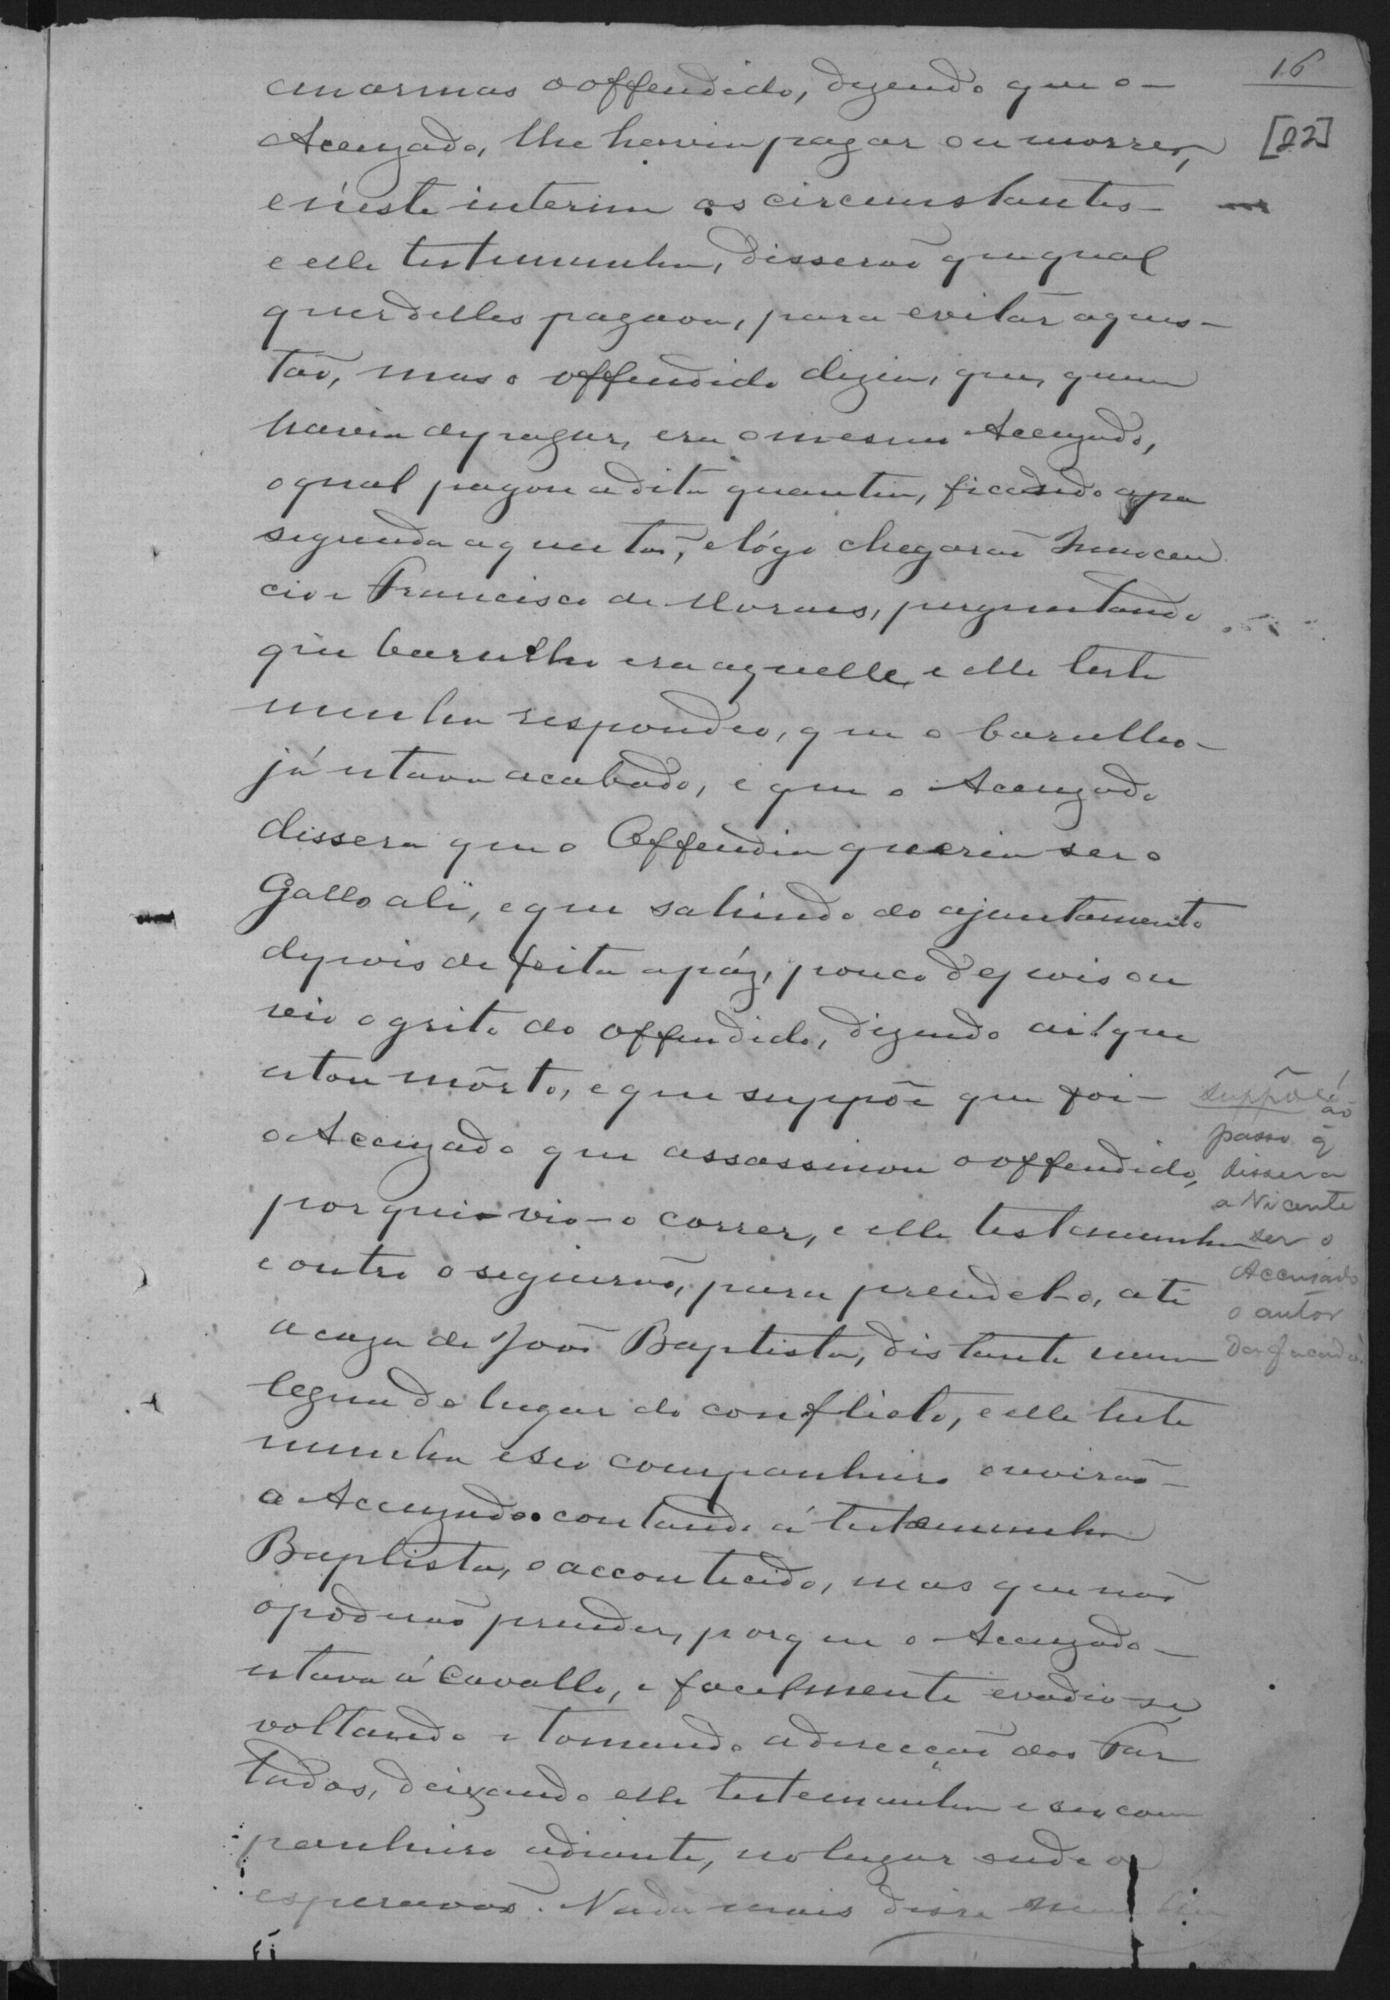 16
[22]
em armas o offendido, dizendo que o
Accuzado, lhe havia pagar ou morrer,
e n'este interim os circumstantes
e elle testemunha, disserão que qual
quer delles pagava, para evitar a ques-
tão, mas o offendido dizia, que, quem
havia de pagar, era o mesmo Accuzado,
o qual pagou a dita quantia, ficando apa
siguada a questão, e lógo chegarão Innocen
cio e Francisco de Moraes, perguntando
que barulho era aquelle, e elle teste
munha respondeo, que o barulho
já estava acabado, e que o Accuzado
dissera que o Offendia queria ser o
Gallo ali, e que sahindo do ajuntamento
depois de feita a páz, pouco depois ou
vio o grito do offendido, dizendo ai! que
estou môrto, e que suppõe que foi
o Accuzado que assassinou o offendido,
por que vio-o correr, e elle testemunha
e outro o seguirão, para prendel-o, até
a caza de João Baptista, distante uma
legua do lugar do conflicto, e elle teste
munha e seo companheiro ouvirão
o Accuzado contando á testemunha
Baptista, o accontecido, mas que não
o poderão prender, porque o Accuzado
estava á cavallo, e facelmente evadio-se,
voltando e tomando a direcção dos Far
tados, deixando elle testemunha e seo com
panheiro adiante, no lugar onde o
esperavão. Nada mais disse nem
suppõe! ao
passo q̃
dissera
a Vicente
ser o
Accusado
o autor
da facada